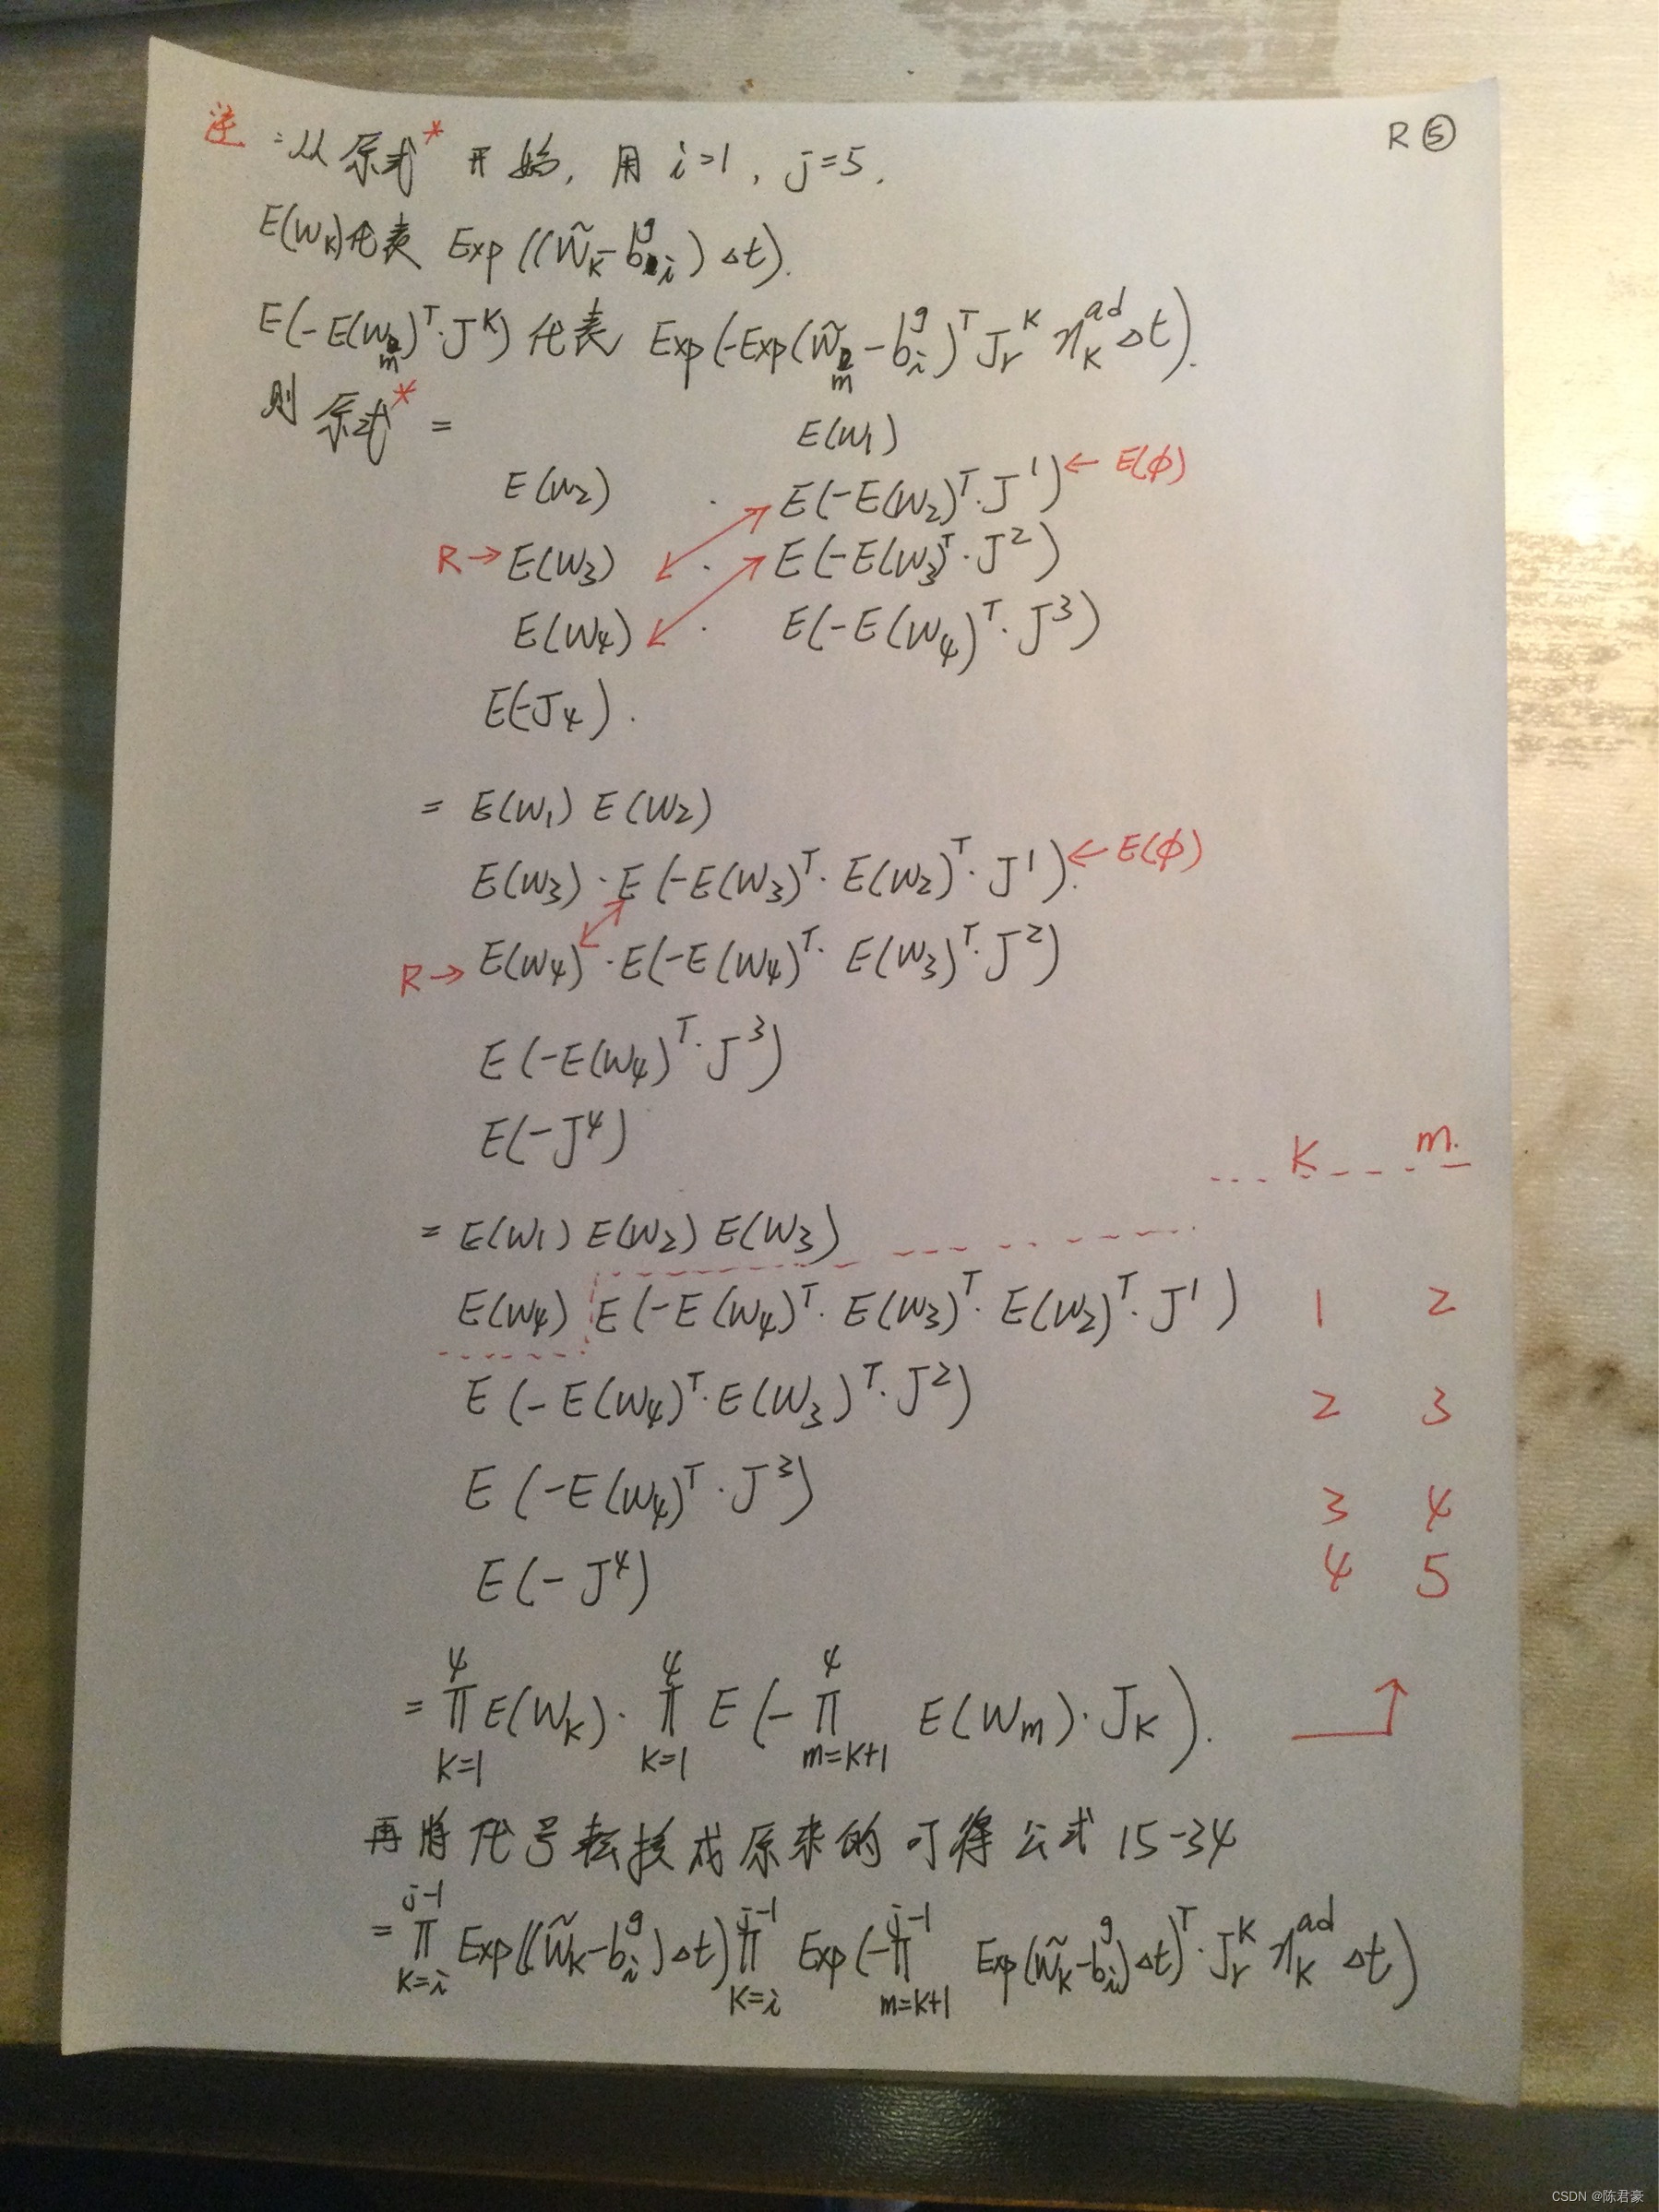 R ⑤
注:从原式* 开始, 用 i=1, j=5.
E(W_K)代表 Exp((W̃_K-b^g_i)Δt).
E(-E(W_m)^T·J^K) 代表 Exp(-Exp(W̃_m-b^g_i)^T J_r^K η_K^ad Δt).
则 原式* =
E(W_1)
E(W_2) · E(-E(W_2)^T·J^1) ← E(φ)
R→ E(W_3) · E(-E(W_3)^T·J^2)
E(W_4) · E(-E(W_4)^T·J^3)
E(-J_4).
= E(W_1) E(W_2)
E(W_3)·E(-E(W_3)^T·E(W_2)^T·J^1). ← E(φ)
R→ E(W_4)·E(-E(W_4)^T·E(W_3)^T·J^2)
E(-E(W_4)^T·J^3)
E(-J^4)
K m.
= E(W_1) E(W_2) E(W_3)
E(W_4) E(-E(W_4)^T·E(W_3)^T·E(W_2)^T·J^1) 1 2
E(-E(W_4)^T·E(W_3)^T·J^2) 2 3
E(-E(W_4)^T·J^3) 3 4
E(-J^4) 4 5
= ∏_{K=1}^{4} E(W_K)·∏_{K=1}^{4} E(-∏_{m=K+1}^{4} E(W_m)·J_K).
再将代号转换成原来的可得公式 15-34
= ∏_{K=i}^{j-1} Exp((W̃_K-b^g_i)Δt) ∏_{K=i}^{j-1} Exp(-∏_{m=K+1}^{j-1} Exp(W̃_K-b^g_i)Δt)^T·J_r^K η_K^ad Δt)
CSDN @陈君豪